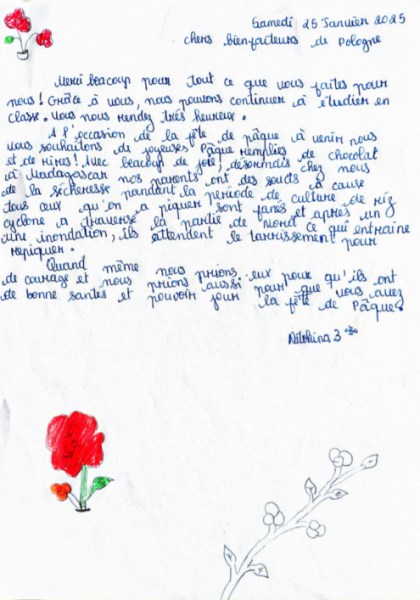 Samedi 25 Janvier 2025
chers bienfaiteurs de Pologne
Merci beacoup pour tout ce que vous faites pour
nous! Grâce à vous, nous pouvons continuer à étudier en
classe. Vous nous rendez très heureux.
A l'occasion de la fête de pâque à venir nous
vous souhaitons de joyeuses Pâque remplies de chocolat
et de rires! Avec beacoup de joie, désormais chez nous
à Madagascar nos parents ont des soucis à cause
de la sécheresse pandant la période de culture de riz
tous ceux qu'on a piquer sont fanés et après un
cyclone a traversé la partie de nord ce qui entraine
une inondation, ils attendent le tarrissement pour
repiquer.
Quand même nous prions eux pour qu'ils ont
de courage et nous prions aussi pour que vous avez
de bonne santés et pouvoir jour la fête de Pâque.
3